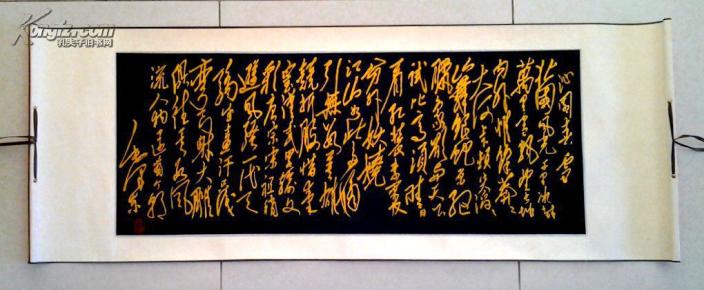 Kongfz.com
孔夫子旧书网
沁园春 雪
北国风光千里冰封
万里雪飘望长城
内外惟馀莽莽
大河上下顿失滔滔
山舞银蛇原驰
腊象欲与天公
试比高须晴日
看红装素裹
分外妖娆
江山如此多娇
引无数英雄
竞折腰惜秦
皇汉武略输文
采唐宗宋祖稍
逊风骚一代天
骄成吉思汗只识
弯弓射大雕
俱往矣数风
流人物还看今朝
毛泽东